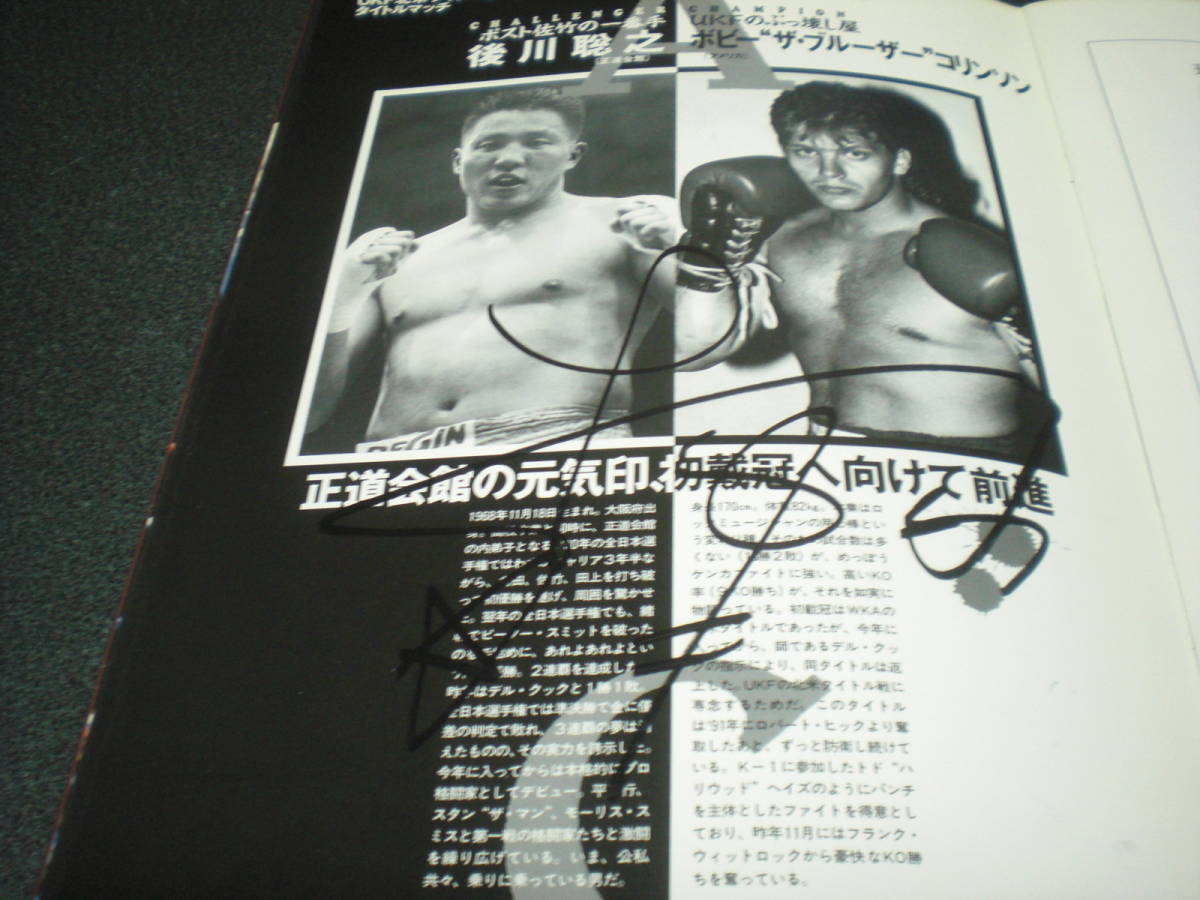 タイトルマッチ
CHALLENGER
ポスト佐竹の一番手
後川聡之
(正道会館)
CHAMPION
UKFのぶっ壊し屋
ボビー“ザ・ブルーザー”コリンソン
(アメリカ)
BEGIN
正道会館の元気印、初戴冠へ向けて前進
1968年11月18日生まれ。大阪府出
時に、正道会館
の内弟子となる。 年の全日本選
手権ではわ キャリア3年半な
がら、 田、佐竹、田上を打ち破
って初優勝を遂げ、周囲を驚かせ
た。翌年の全日本選手権でも、緒
戦でピーター・スミットを破った
のを に、あれよあれよとい
う 勝。2連覇を達成した。
昨年はデル・クックと1勝1敗。
全日本選手権では準決勝で金に僅
差の判定で敗れ、3連覇の夢は消
えたものの、その実力を誇示した。
今年に入ってからは本格的にプロ
格闘家としてデビュー。平 行、
スタン“ザ・マン”、モーリス・ス
ミスと第一戦の格闘家たちと激闘
を繰り広げている。いま、公私
共々、乗りに乗っている男だ。
身長170cm。体重82kg。本業はロ
ックミュージシャンの用心棒とい
う変わり種。そのため試合数は多
くない( 勝2敗)が、めっぽう
ケンカファイトに強い。高いKO
率(9KO勝ち)が、それを如実に
物語っている。初戴冠はWKAの
タイトルであったが、今年に
入ってから、師であるデル・クッ
クの指示により、同タイトルは返
上した。UKFの北米タイトル戦に
専念するためだ。このタイトル
は'91年にロバート・ヒックより奪
取したあと、ずっと防衛し続けて
いる。K-1に参加したトド“ハ
リウッド”ヘイズのようにパンチ
を主体としたファイトを得意とし
ており、昨年11月にはフランク・
ウィットロックから豪快なKO勝
ちを奪っている。